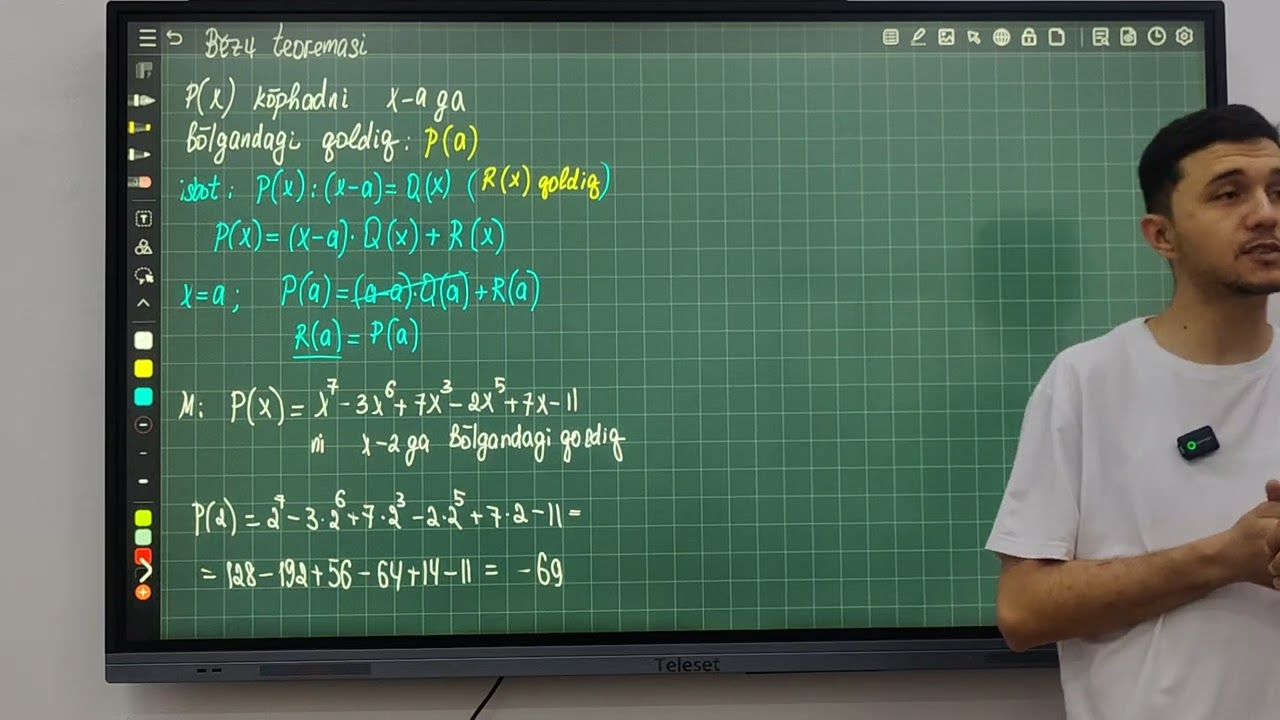 Bézu teoremasi
P(x) kōphadni x-a ga
bōlgandagi qoldiq: P(a)
isbot: P(x):(x-a)= Q(x) (R(x) qoldiq)
P(x)=(x-a)·Q(x)+R(x)
x=a; P(a)=(a-a)·Q(a)+R(a)
R(a)=P(a)
M: P(x)=x⁷-3x⁶+7x³-2x⁵+7x-11
ni x-2 ga Bōlgandagi qoldiq
P(2)=2⁷-3·2⁶+7·2³-2·2⁵+7·2-11=
=128-192+56-64+14-11= -69
Teleset